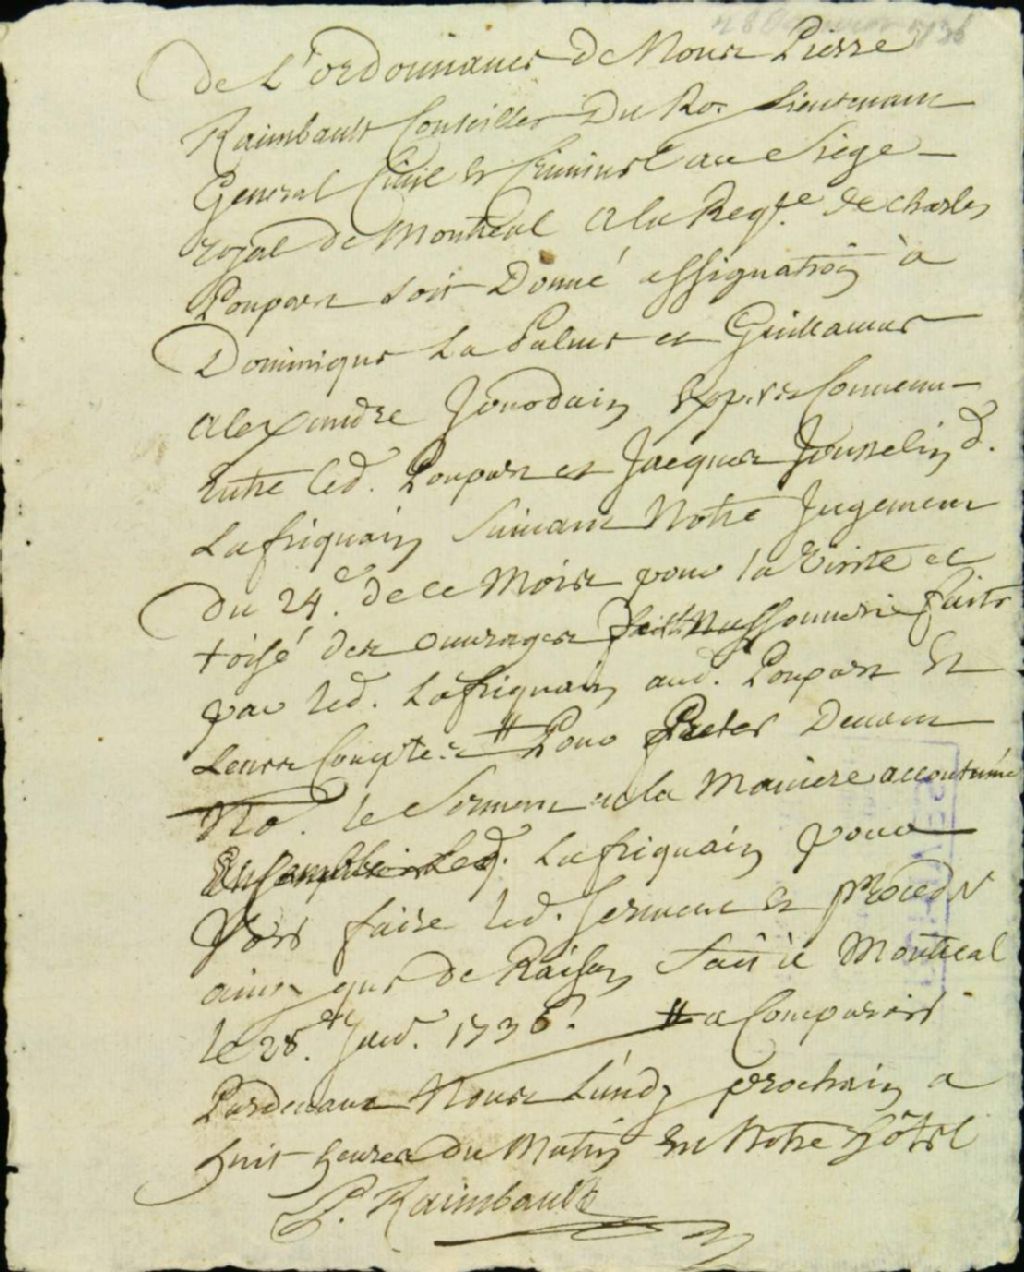 28 Janvier 1736
De L'ordonnance de Nous Pierre
Raimbault Conseiller Du Roy Lieutenant
General Civil et Criminel au Siege
royal de Montreal a la Reqte. de charles
Poupart soit Donné assignation à
Dominique La Palme et Guillaume
alexandre Jourdain Exp.rts Convenu
Entre led. Poupart et Jacques Jousselin d.
Lafriquain Suivant Notre Jugement
du 24e. de ce Mois pour la Visite et
toisé des ouvrages massonnerie faits
par led. Lafriquain aud. Poupart Et
Leurs Comptes # Pour Preter Devant
No. le Serment a la Maniere accoutumé
Ensemble led. Lafriquain pour
Voir faire led. serment et proceder
ainsy que de Raison fait à Montreal
le 28e. Janv. 1736. # a Comparoir
Pardevant Nous Lundy prochain a
huit heures du Matin En Notre hôtel
P. Raimbault